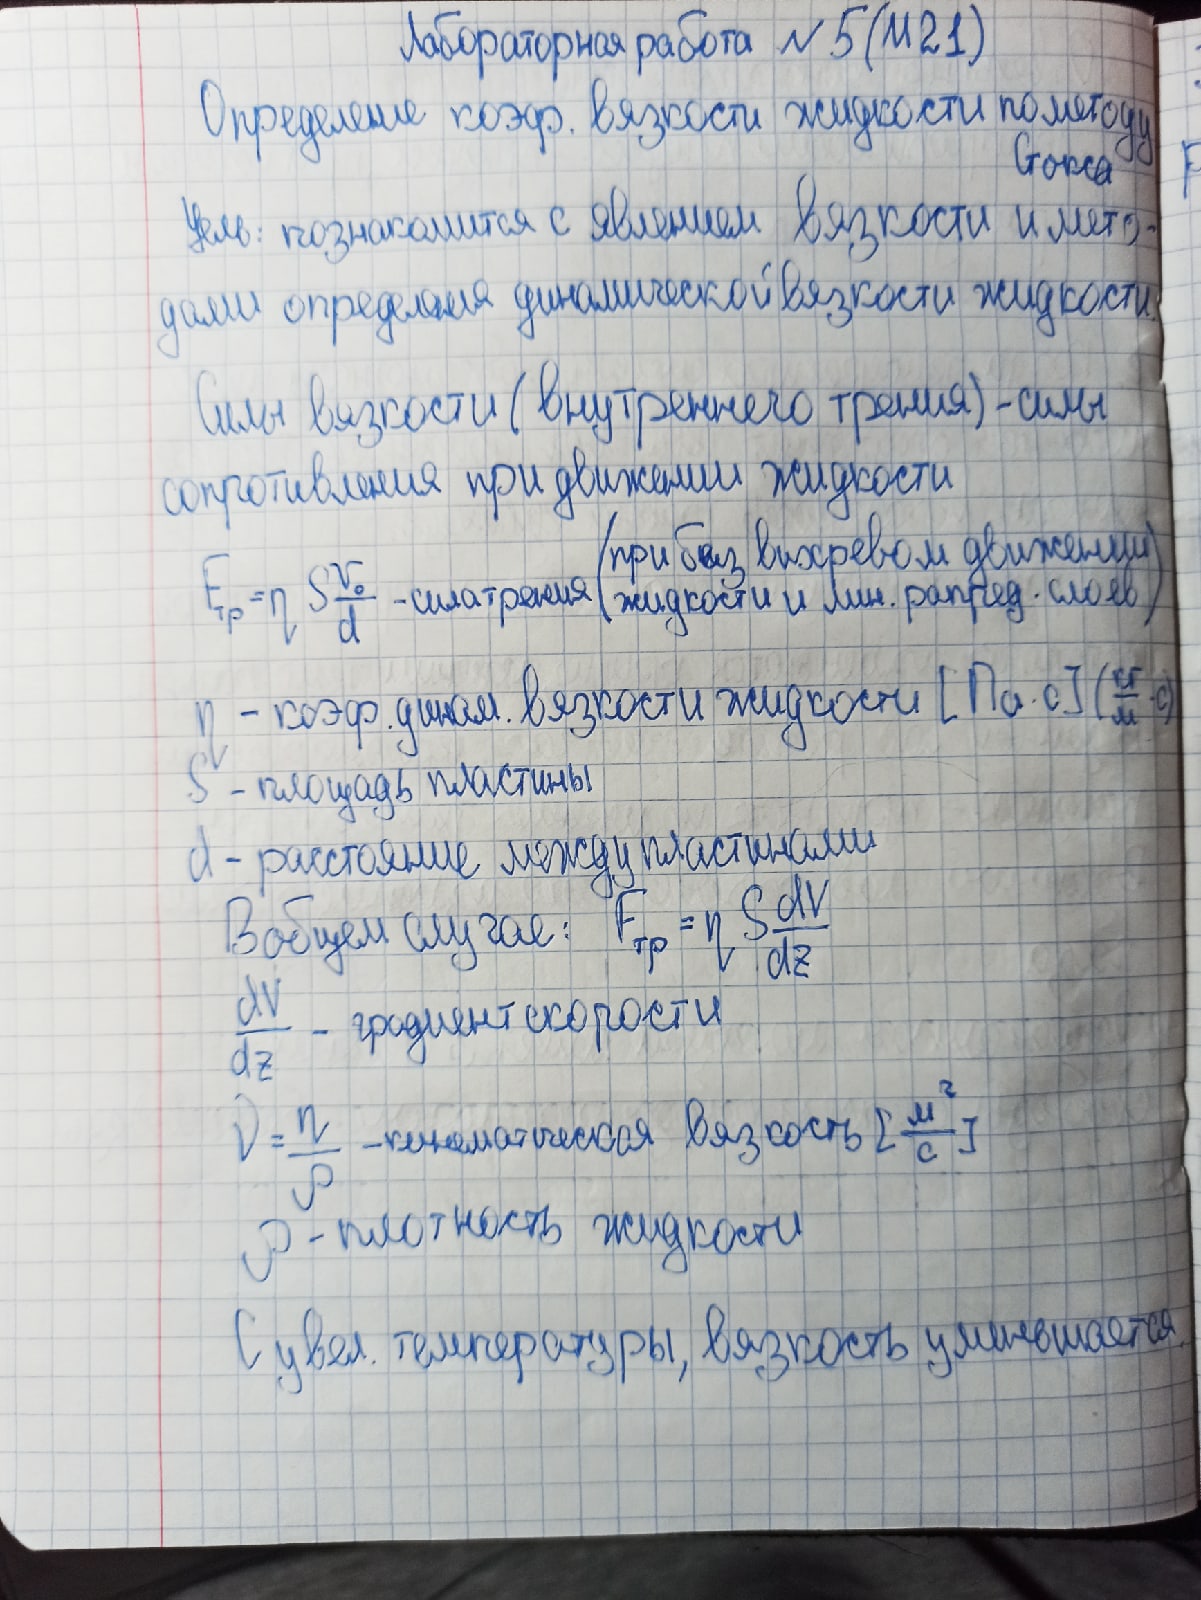 Лабораторная работа №5(М21)
Определение коэф. вязкости жидкости по методу
Стокса
Цель: познакомится с явлением вязкости и мето-
дами определения динамической вязкости жидкости.
Силы вязкости (внутреннего трения) - силы
сопротивления при движении жидкости
Fтр = η S v₀/d - сила трения (при без вихревом движении
жидкости и лин. рапред. слоев)
η - коэф. динам. вязкости жидкости [Па·с] (кг/м·с)
S - площадь пластины
d - расстояние между пластинами
В общем случае: Fтр = η S dV/dz
dV/dz - градиент скорости
ν = η/ρ - кинематическая вязкость [м²/с]
ρ - плотность жидкости
С увел. температуры, вязкость уменьшается.